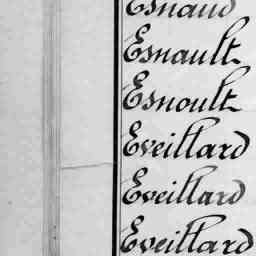 Esnaud
Esnault
Esnoult
Eveillard
Eveillard
Eveillard